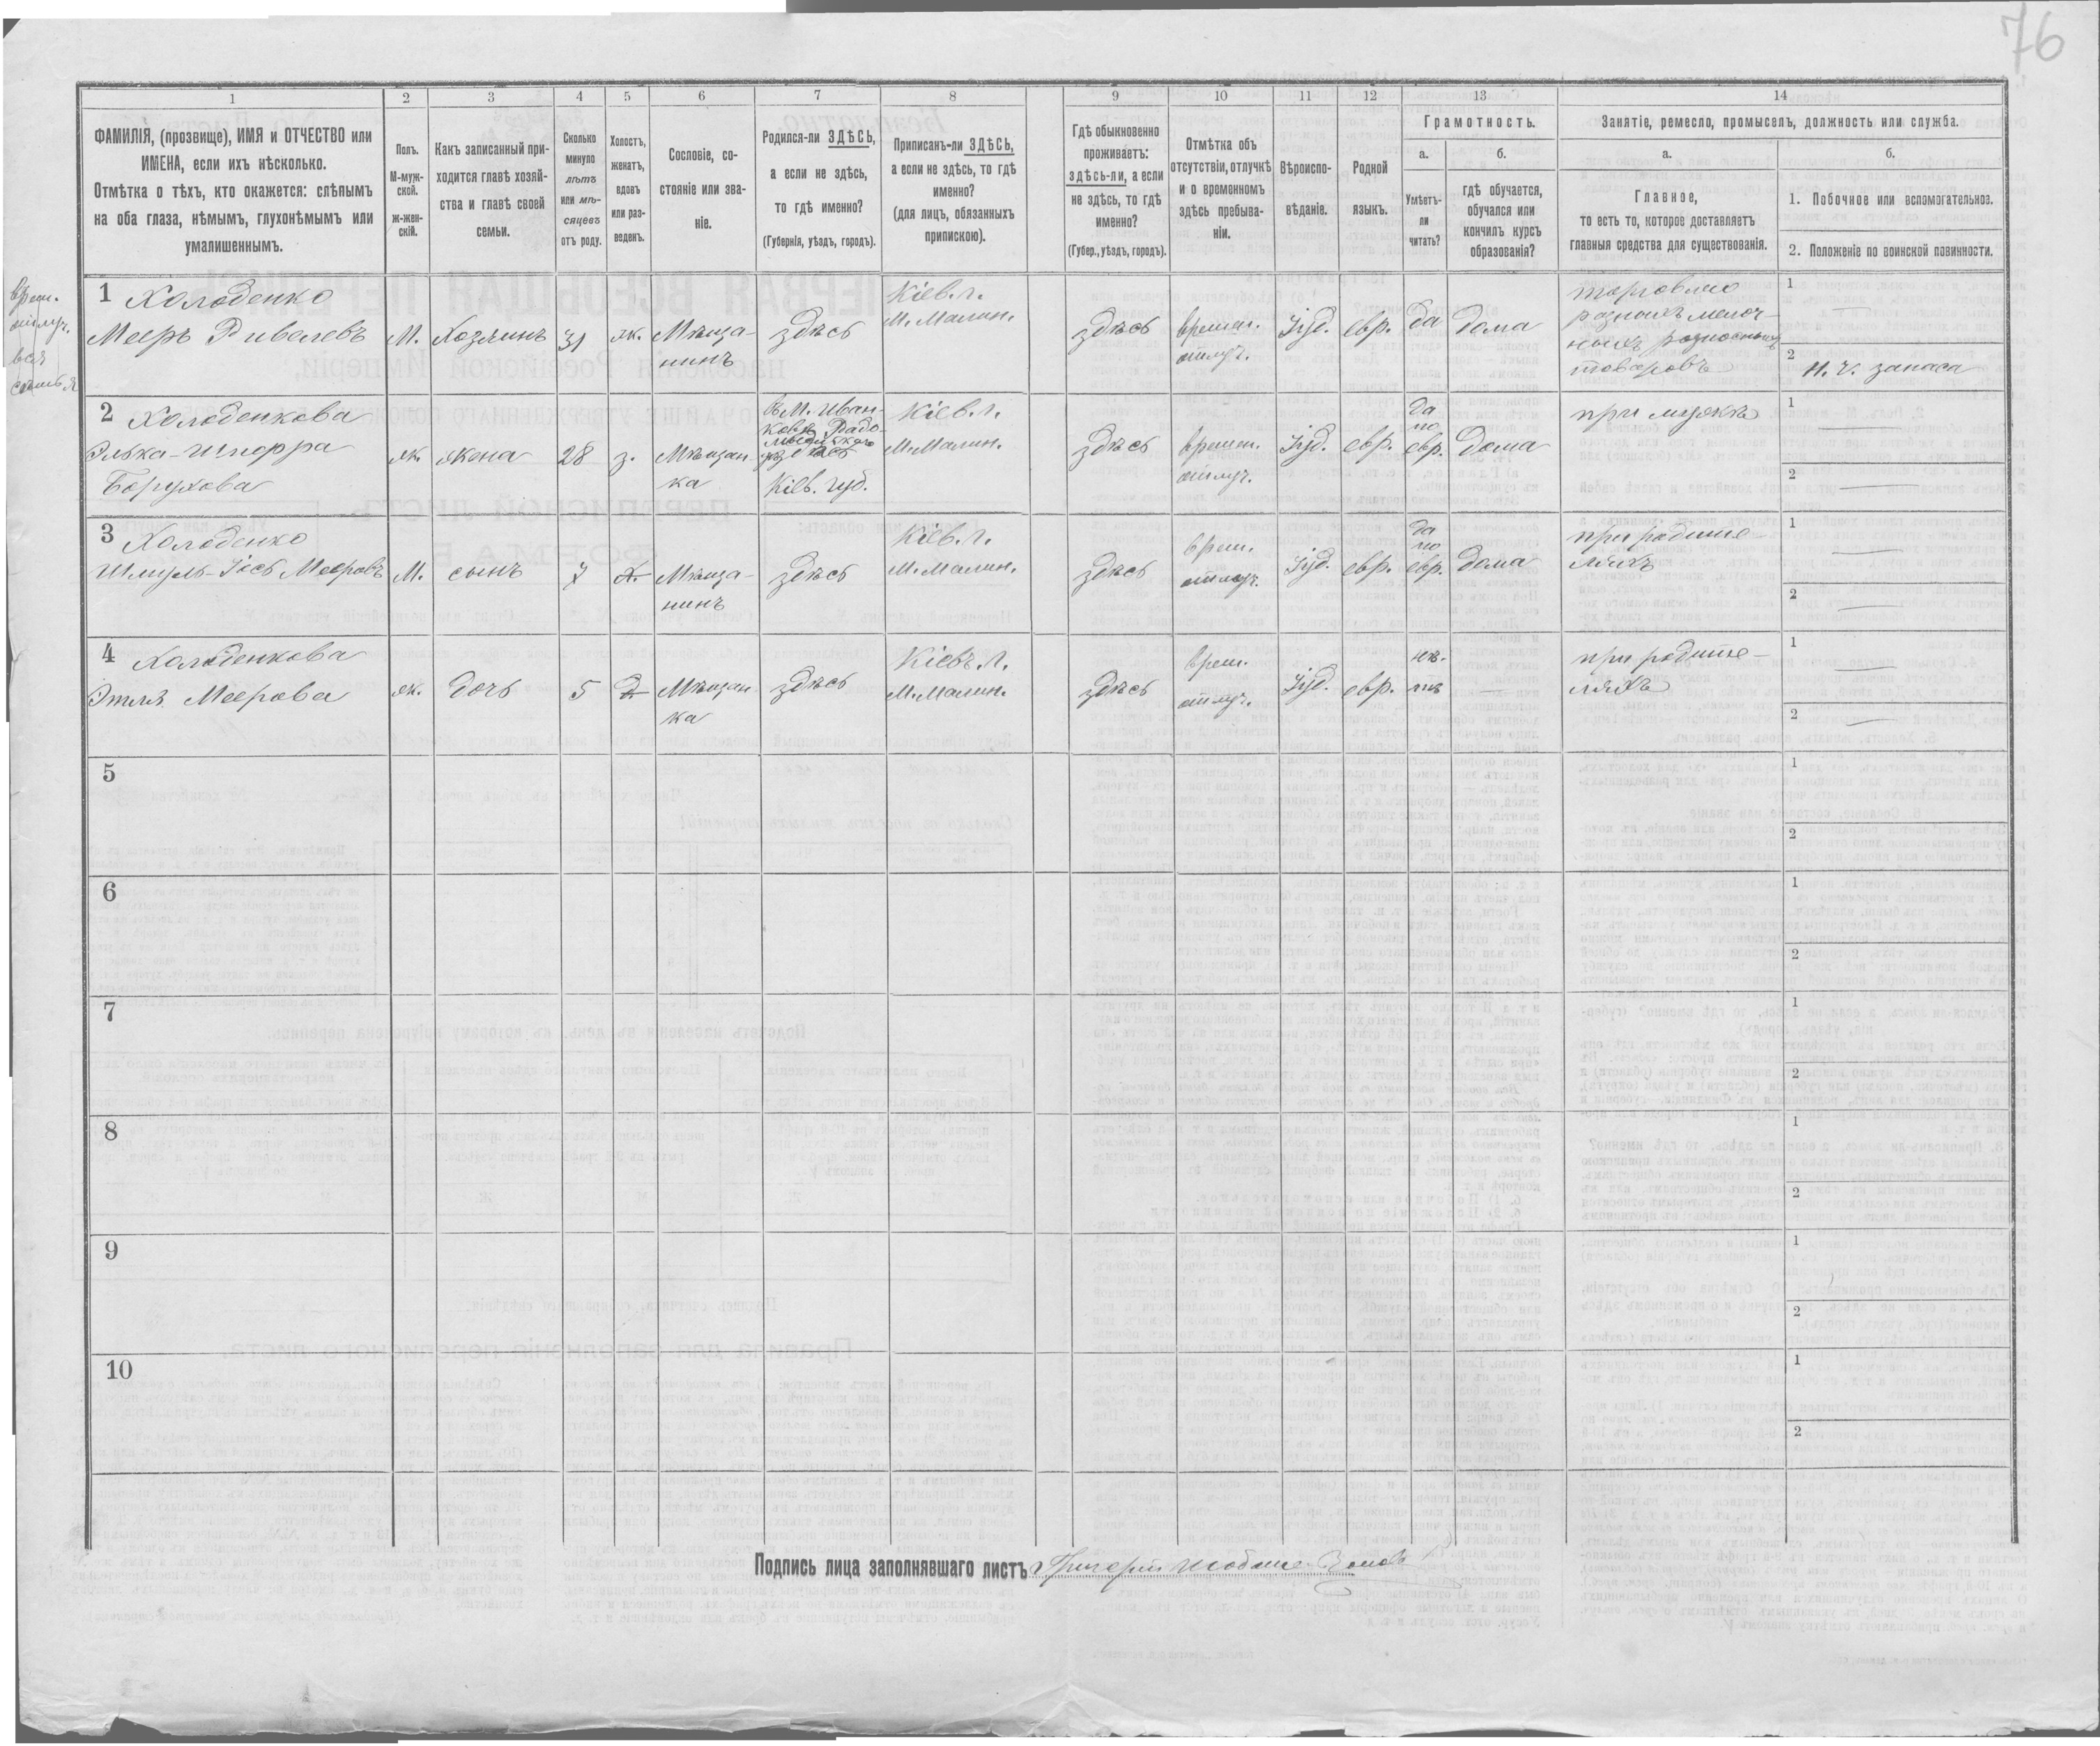 76
1
2
3
4
5
6
7
8
9
10
11
12
13
14
ФАМИЛІЯ, (прозвище), ИМЯ и ОТЧЕСТВО или
ИМЕНА, если ихъ нѣсколько.
Отмѣтка о тѣхъ, кто окажется: слѣпымъ
на оба глаза, нѣмымъ, глухонѣмымъ или
умалишеннымъ.
Полъ.
М-муж-
ской.
ж-жен-
скій.
Какъ записанный при-
ходится главѣ хозяй-
ства и главѣ своей
семьи.
Сколько
минуло
лѣтъ
или мѣ-
сяцевъ
отъ роду.
Холостъ,
женатъ,
вдовъ
или раз-
веденъ.
Сословіе, со-
стояніе или зва-
ніе.
Родился-ли ЗДѢСЬ,
а если не здѣсь,
то гдѣ именно?
(Губернія, уѣздъ, городъ).
Приписанъ-ли ЗДѢСЬ,
а если не здѣсь, то гдѣ
именно?
(для лицъ, обязанныхъ
припискою).
Гдѣ обыкновенно
проживаетъ:
здѣсь-ли, а если
не здѣсь, то гдѣ
именно?
(Губер., уѣздъ, городъ).
Отмѣтка объ
отсутствіи, отлучкѣ
и о временномъ
здѣсь пребыва-
ніи.
Вѣроиспо-
вѣданіе.
Родной
языкъ.
Грамотность.
а.
Умѣетъ-
ли
читать?
б.
гдѣ обучается,
обучался или
кончилъ курсъ
образованія?
Занятіе, ремесло, промыселъ, должность или служба.
а.
Главное,
то есть то, которое доставляетъ
главныя средства для существованія.
б.
1. Побочное или вспомогательное.
2. Положеніе по воинской повинности.
врем.
отлуч.
вся
семья
1 Холоденко
Мееръ Ривелевъ
М.
Хозяинъ
31
ж.
Мѣща-
нинъ
здѣсь
Кіев. г.
м. Малин.
здѣсь
времен.
отлуч.
Іуд.
евр.
да
дома
торговлю
разныхъ мелоч-
ныхъ разносныхъ
товаровъ
1
2 н. ч. запаса
2 Холоденкова
Элька-Шпфра
Борухова
ж.
жена
28
з.
Мѣщан
ка
въ М. Иван-
ковѣ Радо-
мысльскаго
здѣсь
Кіев. губ.
Кіев. г.
м. Малин.
здѣсь
времен.
отлуч.
Іуд.
евр.
да
по
евр.
дома
при мужѣ
1
2
3 Холоденко
Шмуль-Іось Мееровъ
М.
сынъ
7
х.
Мѣща-
нинъ
здѣсь
Кіев. г.
м. Малин.
здѣсь
врем.
отлуч.
Іуд.
евр.
да
по
евр.
дома
при родите-
ляхъ
1
2
4 Холоденкова
Этля Меерова
ж.
дочь
5
Мѣщан
ка
здѣсь
Кіевъ. г.
м. Малин.
здѣсь
врем.
отлуч.
Іуд.
евр.
нѣ-
тъ
при родите-
ляхъ
1
2
5
1
2
6
1
2
7
1
2
8
1
2
9
1
2
10
1
2
Подпись лица заполнявшаго листъ